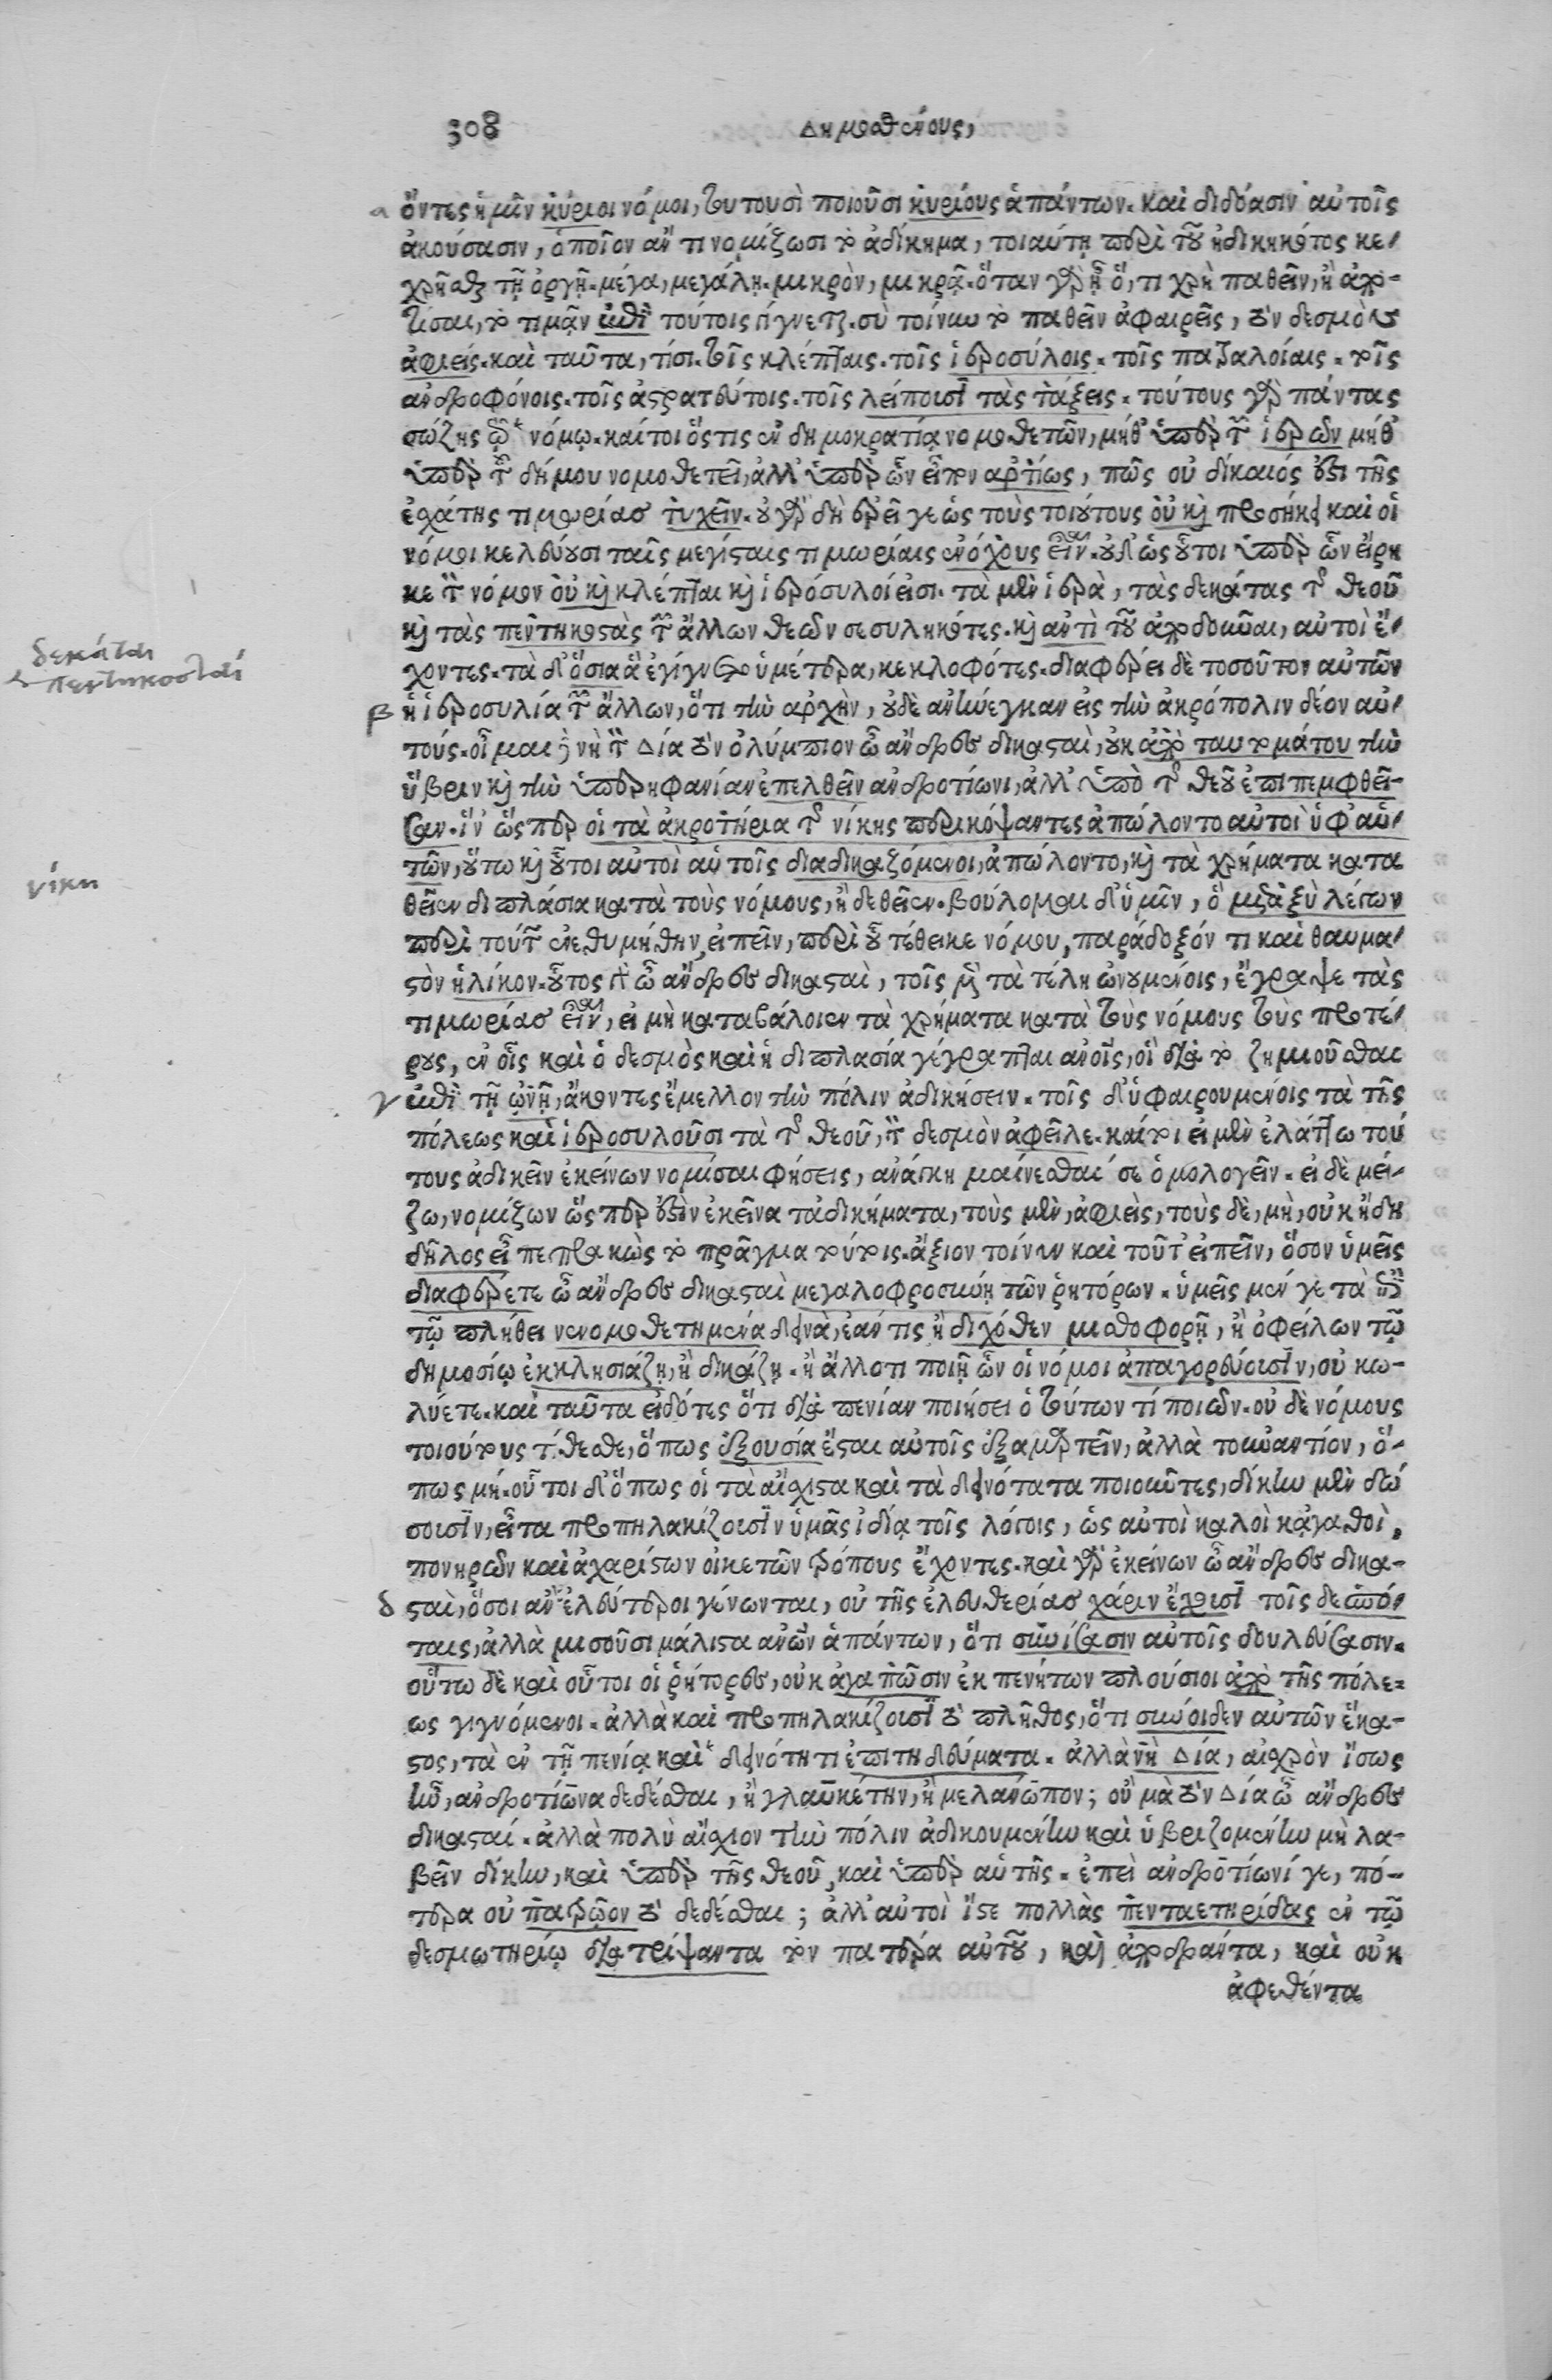 308
Δημοσθένους,
ὄντες ἡμῖν κύριοι νόμοι, τουτουσὶ ποιοῦσι κυρίους ἁπάντων. καὶ διδόασιν αὐτοῖς
ἀκούσασιν, ὁποῖον ἄν τι νομίζωσι τὸ ἀδίκημα, τοιαύτῃ περὶ τοῦ ἠδικηκότος κε-
χρῆσθαι τῇ ὀργῇ. μέγα, μεγάλῃ. μικρὸν, μικρᾷ. ὅταν γὰρ ᾖ ὅ, τι χρὴ παθεῖν, ἢ ἀπο-
τῖσαι, τὸ τιμᾷν ἐπὶ τούτοις γίγνεται. σὺ τοίνυν τὸ παθεῖν ἀφαιρεῖς, τὸν δεσμὸν
ἀφιείς. καὶ ταῦτα, τίσι. τοῖς κλέπταις. τοῖς ἱεροσύλοις. τοῖς πατραλοίαις. τοῖς
ἀνδροφόνοις. τοῖς ἀστρατεύτοις. τοῖς λείπουσι τὰς τάξεις. τούτους γὰρ πάντας
σώζεις τῷ νόμῳ. καίτοι ὅστις ἐν δημοκρατίᾳ νομοθετῶν, μήθ' ὑπὲρ τῶν ἱερῶν μήθ'
ὑπὲρ τοῦ δήμου νομοθετεῖ, ἀλλ' ὑπὲρ ὧν εἶπον ἀρτίως, πῶς οὐ δίκαιός ἐστι τῆς
ἐσχάτης τιμωρίας τυχεῖν. οὐ γὰρ δὴ ἐρεῖ γε ὡς τοὺς τοιούτους οὐ καὶ προσήκει καὶ οἱ
νόμοι κελεύουσι ταῖς μεγίσταις τιμωρίαις ἐνόχους εἶναι. οὐδ' ὡς οὗτοι ὑπὲρ ὧν εἴρη
κε τὸν νόμον οὐ καὶ κλέπται καὶ ἱερόσυλοί εἰσι. τὰ μὲν ἱερὰ, τὰς δεκάτας τῆς θεοῦ
καὶ τὰς πεντηκοστὰς τῶν ἄλλων θεῶν σεσυληκότες. καὶ ἀντὶ τοῦ ἀποδοῦναι, αὐτοὶ ἔ-
χοντες. τὰ δ' ὅσια ἃ ἐγίγνετο ὑμέτερα, κεκλοφότες. διαφέρει δὲ τοσοῦτον αὐτῶν
ἡ ἱεροσυλία τῶν ἄλλων, ὅτι τὴν ἀρχὴν, οὐδὲ ἀνήνεγκαν εἰς τὴν ἀκρόπολιν δέον αὐ-
τούς. οἶμαι νὴ τὸν Δία τὸν ὀλύμπιον ὦ ἄνδρες δικασταὶ, οὐκ ἀπὸ ταυτομάτου τὴν
ὕβριν καὶ τὴν ὑπερηφανίαν ἐπελθεῖν ἀνδροτίωνι, ἀλλ' ὑπὸ τῆς θεοῦ ἐπιπεμφθεῖ-
σαν. ἵν' ὥσπερ οἱ τὰ ἀκρωτήρια τῆς νίκης περικόψαντες ἀπώλοντο αὐτοὶ ὑφ' αὑ-
τῶν, οὕτω καὶ οὗτοι αὐτοὶ αὑτοῖς διαδικαζόμενοι, ἀπώλοντο, καὶ τὰ χρήματα κατα
θεῖεν διπλάσια κατὰ τοὺς νόμους, ἢ δεθεῖεν. βούλομαι δ' ὑμῖν, ὃ μεταξὺ λέγων
περὶ τούτων ἐνεθυμήθην, εἰπεῖν, περὶ οὗ τέθεικε νόμου, παράδοξόν τι καὶ θαυμα-
στὸν ἡλίκον. οὗτος γὰρ ὦ ἄνδρες δικασταὶ, τοῖς μὲν τὰ τέλη ὠνουμένοις, ἔγραψε τὰς
τιμωρίας εἶναι, εἰ μὴ καταβάλοιεν τὰ χρήματα κατὰ τοὺς νόμους τοὺς προτέ-
ρους, ἐν οἷς καὶ ὁ δεσμὸς καὶ ἡ διπλασία γέγραπται ἀνοῖς, οἳ διὰ τὸ ζημιοῦσθαι
ἐπὶ τῇ ὠνῇ, ἄκοντες ἔμελλον τὴν πόλιν ἀδικήσειν. τοῖς δ' ὑφαιρουμένοις τὰ τῆς
πόλεως καὶ ἱεροσυλοῦσι τὰ τῆς θεοῦ, τὸν δεσμὸν ἀφεῖλε. καίτοι εἰ μὲν ἐλάττω τού
τους ἀδικεῖν ἐκείνων νομίσαι φήσεις, ἀνάγκη μαίνεσθαί σε ὁμολογεῖν. εἰ δὲ μεί-
ζω, νομίζων ὥσπερ ἐστὶν ἐκεῖνα τἀδικήματα, τοὺς μὲν, ἀφιεὶς, τοὺς δὲ, μὴ, οὐκ ἤδη
δῆλος εἶ πεπρακὼς τὸ πρᾶγμα τούτοις. ἄξιον τοίνυν καὶ τοῦτ' εἰπεῖν, ὅσον ὑμεῖς
διαφέρετε ὦ ἄνδρες δικασταὶ μεγαλοφροσύνῃ τῶν ῥητόρων. ὑμεῖς μέν γε τὰ ἐπὶ
τῷ πλήθει νενομοθετημένα δεινὰ, ἐάν τις ἢ διχόθεν μισθοφορῇ, ἢ ὀφείλων τῷ
δημοσίῳ ἐκκλησιάζῃ, ἢ δικάζῃ. ἢ ἄλλο τι ποιῇ ὧν οἱ νόμοι ἀπαγορεύουσιν, οὐ κω-
λύετε. καὶ ταῦτα εἰδότες ὅτι διὰ πενίαν ποιήσει ὁ τούτων τί ποιῶν. οὐ δὲ νόμους
τοιούτους τίθεσθε, ὅπως ἐξουσία ἔσται αὐτοῖς ἐξαμαρτεῖν, ἀλλὰ τοὐναντίον, ὅ-
πως μή. οὗτοι δ' ὅπως οἱ τὰ αἴσχιστα καὶ τὰ δεινότατα ποιοῦντες, δίκην μὲν δώ
σουσιν, εἶτα προπηλακίζουσιν ὑμᾶς ἰδίᾳ τοῖς λόγοις, ὡς αὐτοὶ καλοὶ κἀγαθοὶ,
πονηρῶν καὶ ἀχαρίστων οἰκετῶν τρόπους ἔχοντες. καὶ γὰρ ἐκείνων ὦ ἄνδρες δικα-
σταὶ, ὅσοι ἂν ἐλεύτεροι γένωνται, οὐ τῆς ἐλευθερίας χάριν ἔχουσι τοῖς δεσπό-
ταις, ἀλλὰ μισοῦσι μάλιστα ἀνῶν ἁπάντων, ὅτι συνίσασιν αὐτοῖς δουλεύσασιν.
οὕτω δὲ καὶ οὗτοι οἱ ῥήτορες, οὐκ ἀγαπῶσιν ἐκ πενήτων πλούσιοι ἀπὸ τῆς πόλε-
ως γιγνόμενοι. ἀλλὰ καὶ προπηλακίζουσι τὸ πλῆθος, ὅτι σύνοιδεν αὐτῶν ἕκα-
στος, τὰ ἐν τῇ πενίᾳ καὶ δεινότητι ἐπιτηδεύματα. ἀλλὰ νὴ Δία, αἰσχρὸν ἴσως
ἦν, ἀνδροτίωνα δεδέσθαι, ἢ γλαυκέτην, ἢ μελάνωπον; οὐ μὰ τὸν Δία ὦ ἄνδρες
δικασταί. ἀλλὰ πολὺ αἴσχιον τὴν πόλιν ἀδικουμένην καὶ ὑβριζομένην μὴ λα-
βεῖν δίκην, καὶ ὑπὲρ τῆς θεοῦ, καὶ ὑπὲρ αὑτῆς. ἐπεὶ ἀνδροτίωνί γε, πό-
τερα οὐ πατρῷον τὸ δεδέσθαι; ἀλλ' αὐτοὶ ἴστε πολλὰς πενταετηρίδας ἐν τῷ
δεσμωτηρίῳ διατρίψαντα τὸν πατέρα αὐτοῦ, καὶ ἀποδράντα, καὶ οὐκ
ἀφεθέντα
α
δεκάται
πεντηκοσταί
β
νίκη
γ
δ